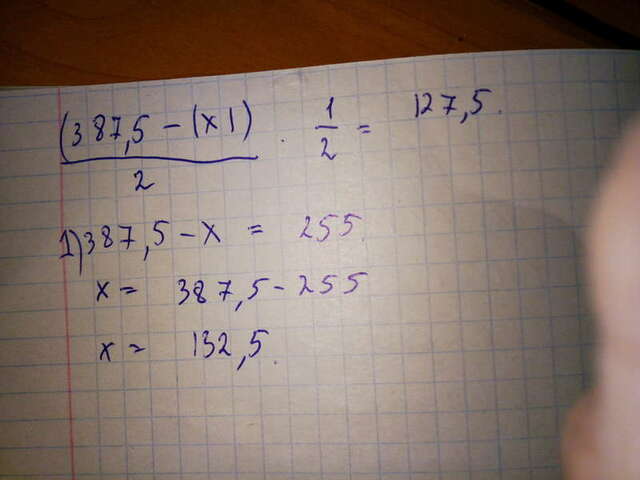 (387,5 - (x1) / 2 · 1/2 = 127,5.
1) 387,5 - x = 255.
x = 387,5 - 255
x = 132,5.